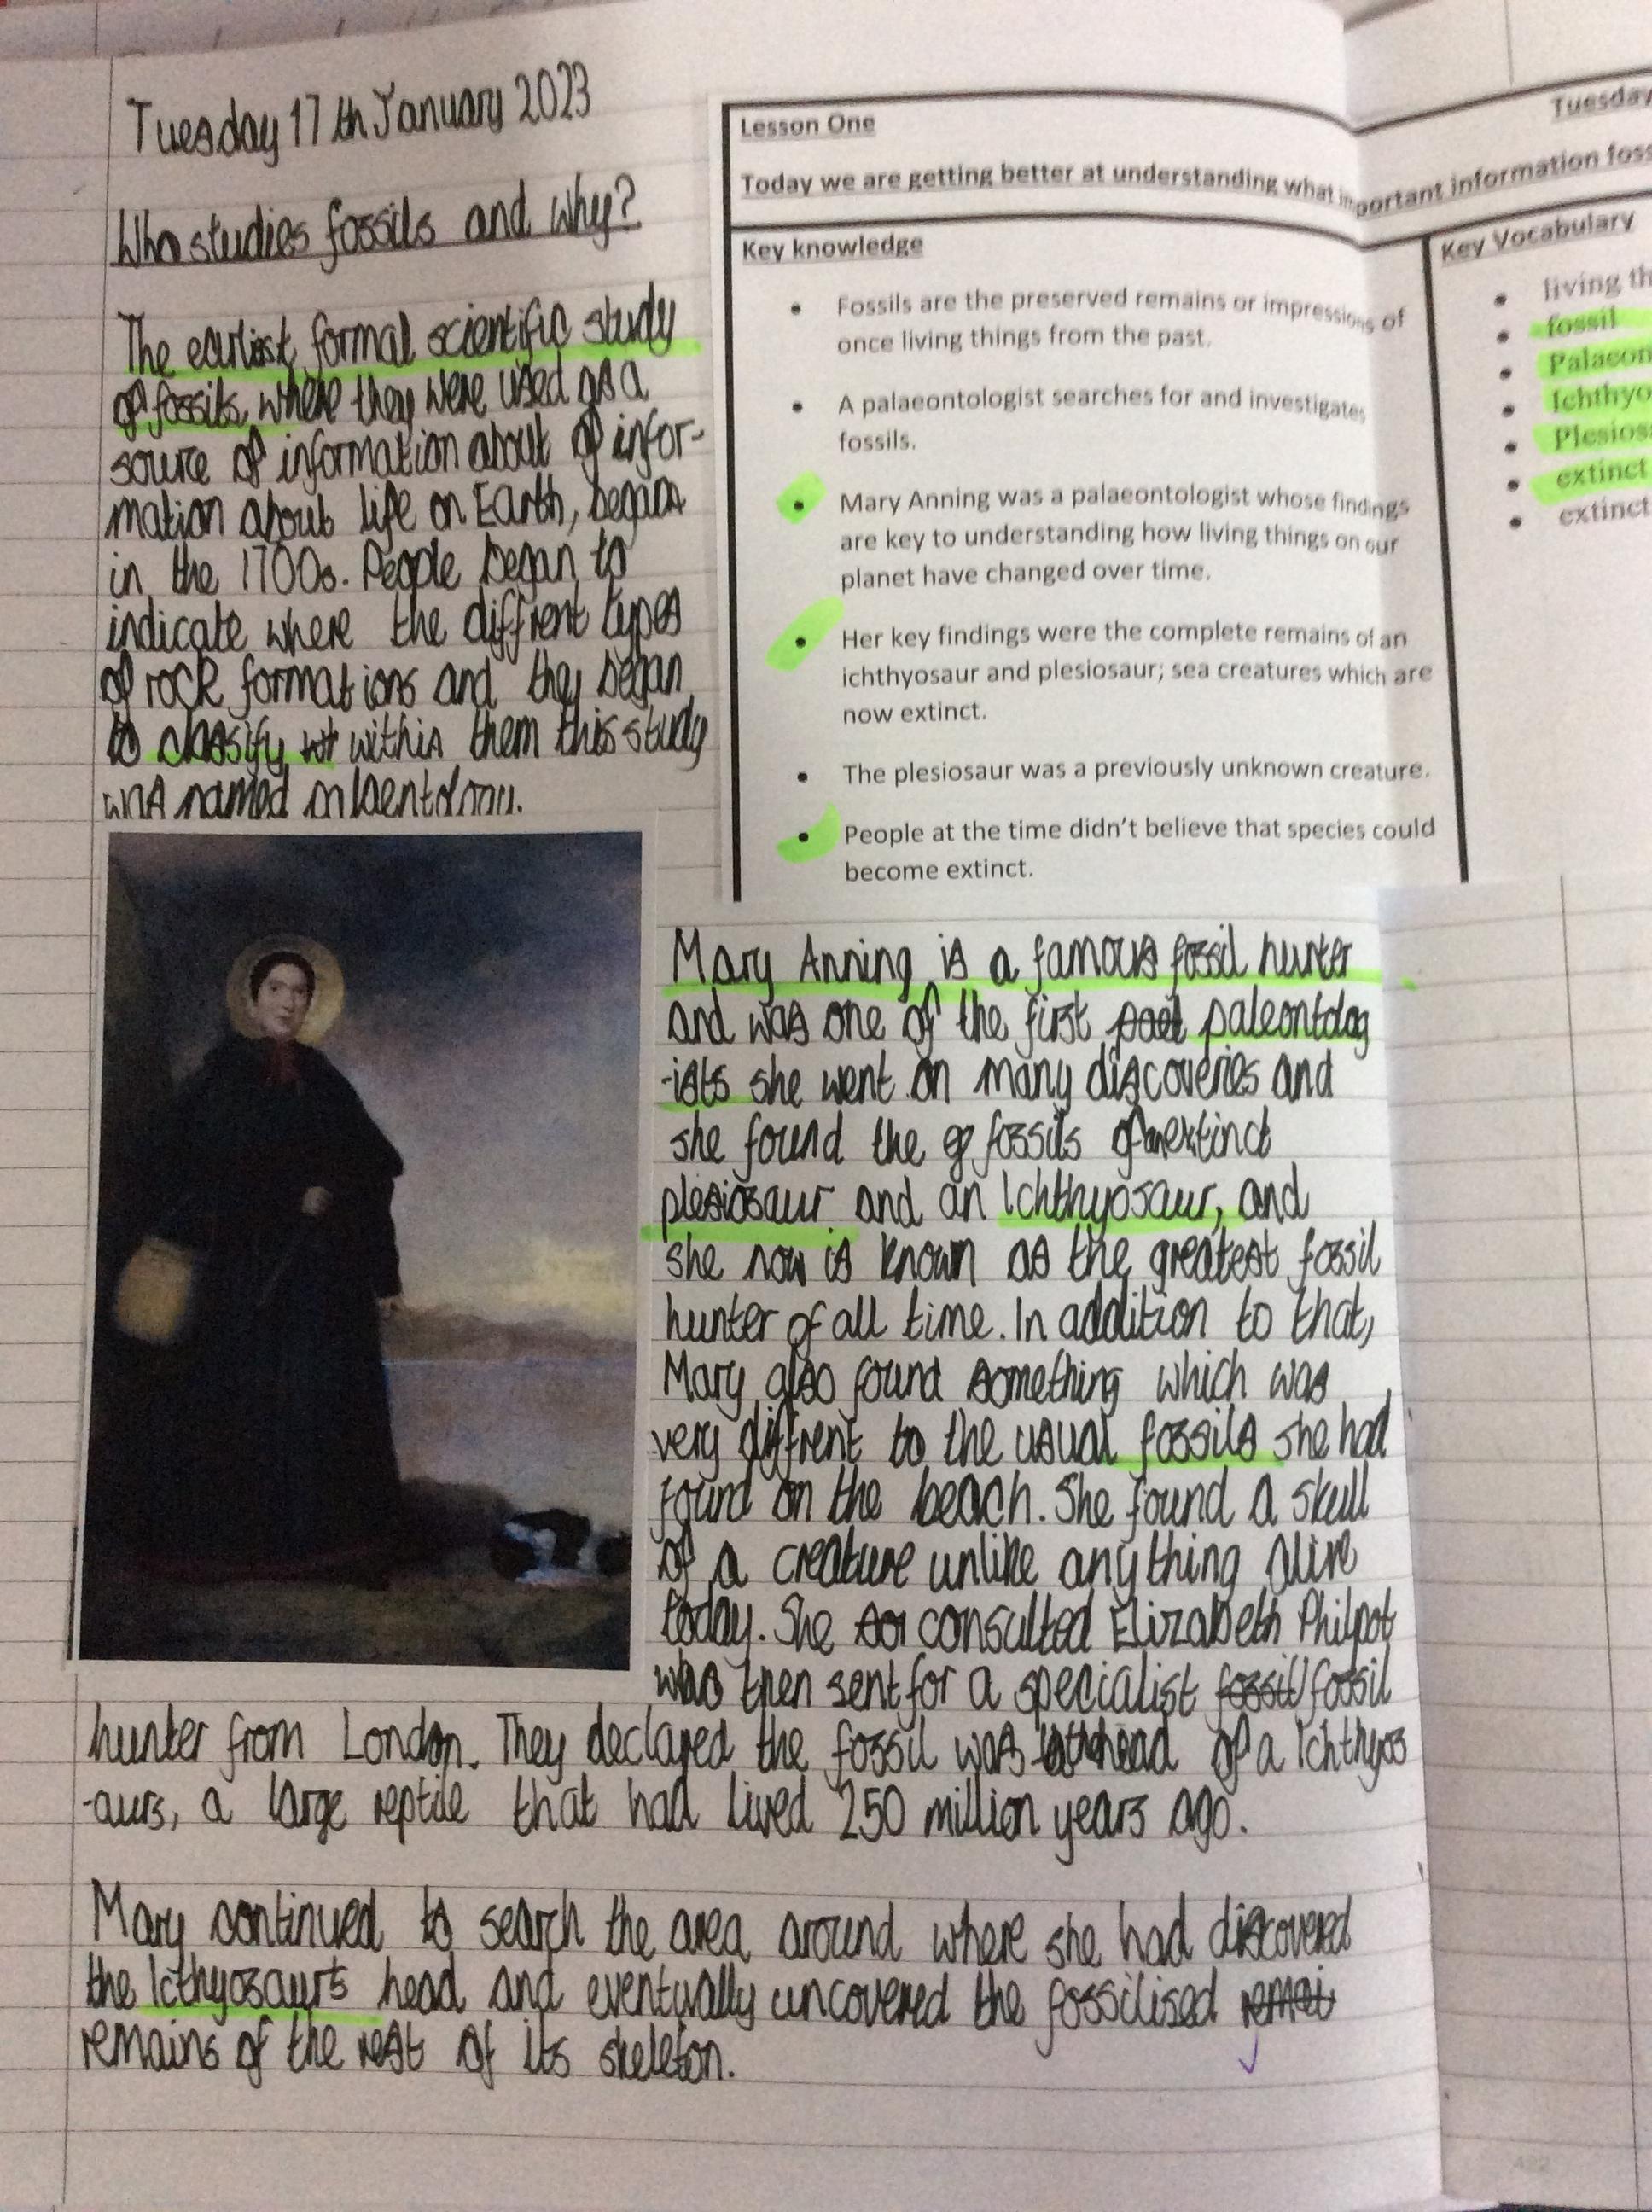 Tuesday 17th January 2023
Who studies fossils and why?
The earliest formal scientific study
of fossils, where they were used as a
source of information about of infor-
mation about life on Earth, began
in the 1700s. People began to
indicate where the diffrent types
of rock formations and they began
to classify wt within them this study
was named
Lesson One
Today we are getting better at understanding what important information foss
Key knowledge
• Fossils are the preserved remains or impressions of
once living things from the past.
• A palaeontologist searches for and investigates
fossils.
• Mary Anning was a palaeontologist whose findings
are key to understanding how living things on our
planet have changed over time.
• Her key findings were the complete remains of an
ichthyosaur and plesiosaur; sea creatures which are
now extinct.
• The plesiosaur was a previously unknown creature.
• People at the time didn't believe that species could
become extinct.
Tuesday
Key Vocabulary
• living th
• fossil
• Palaeon
• Ichthyo
• Plesiosa
• extinct
• extinct
Mary Anning is a famous fossil hunter
and was one of the first pael paleontolog
-ists she went on many discoveries and
she found the of fossils of an extinct
plesiosaur and an Ichthyosaur, and
she now is known as the greatest fossil
hunter of all time. In addition to that,
Mary also found something which was
very diffrent to the usual fossils she had
found on the beach. She found a skull
of a creature unlike anything alive
today. She consulted Elizabeth Philpot
who then sent for a specialist fossil fossil
hunter from London. They declared the fossil was head of a Ichthyos
-aurs, a large reptile that had lived 250 million years ago.
Mary continued to search the area around where she had discovered
the Icthyosaurs head and eventually uncovered the fossilised remai
remains of the rest of its skeleton.